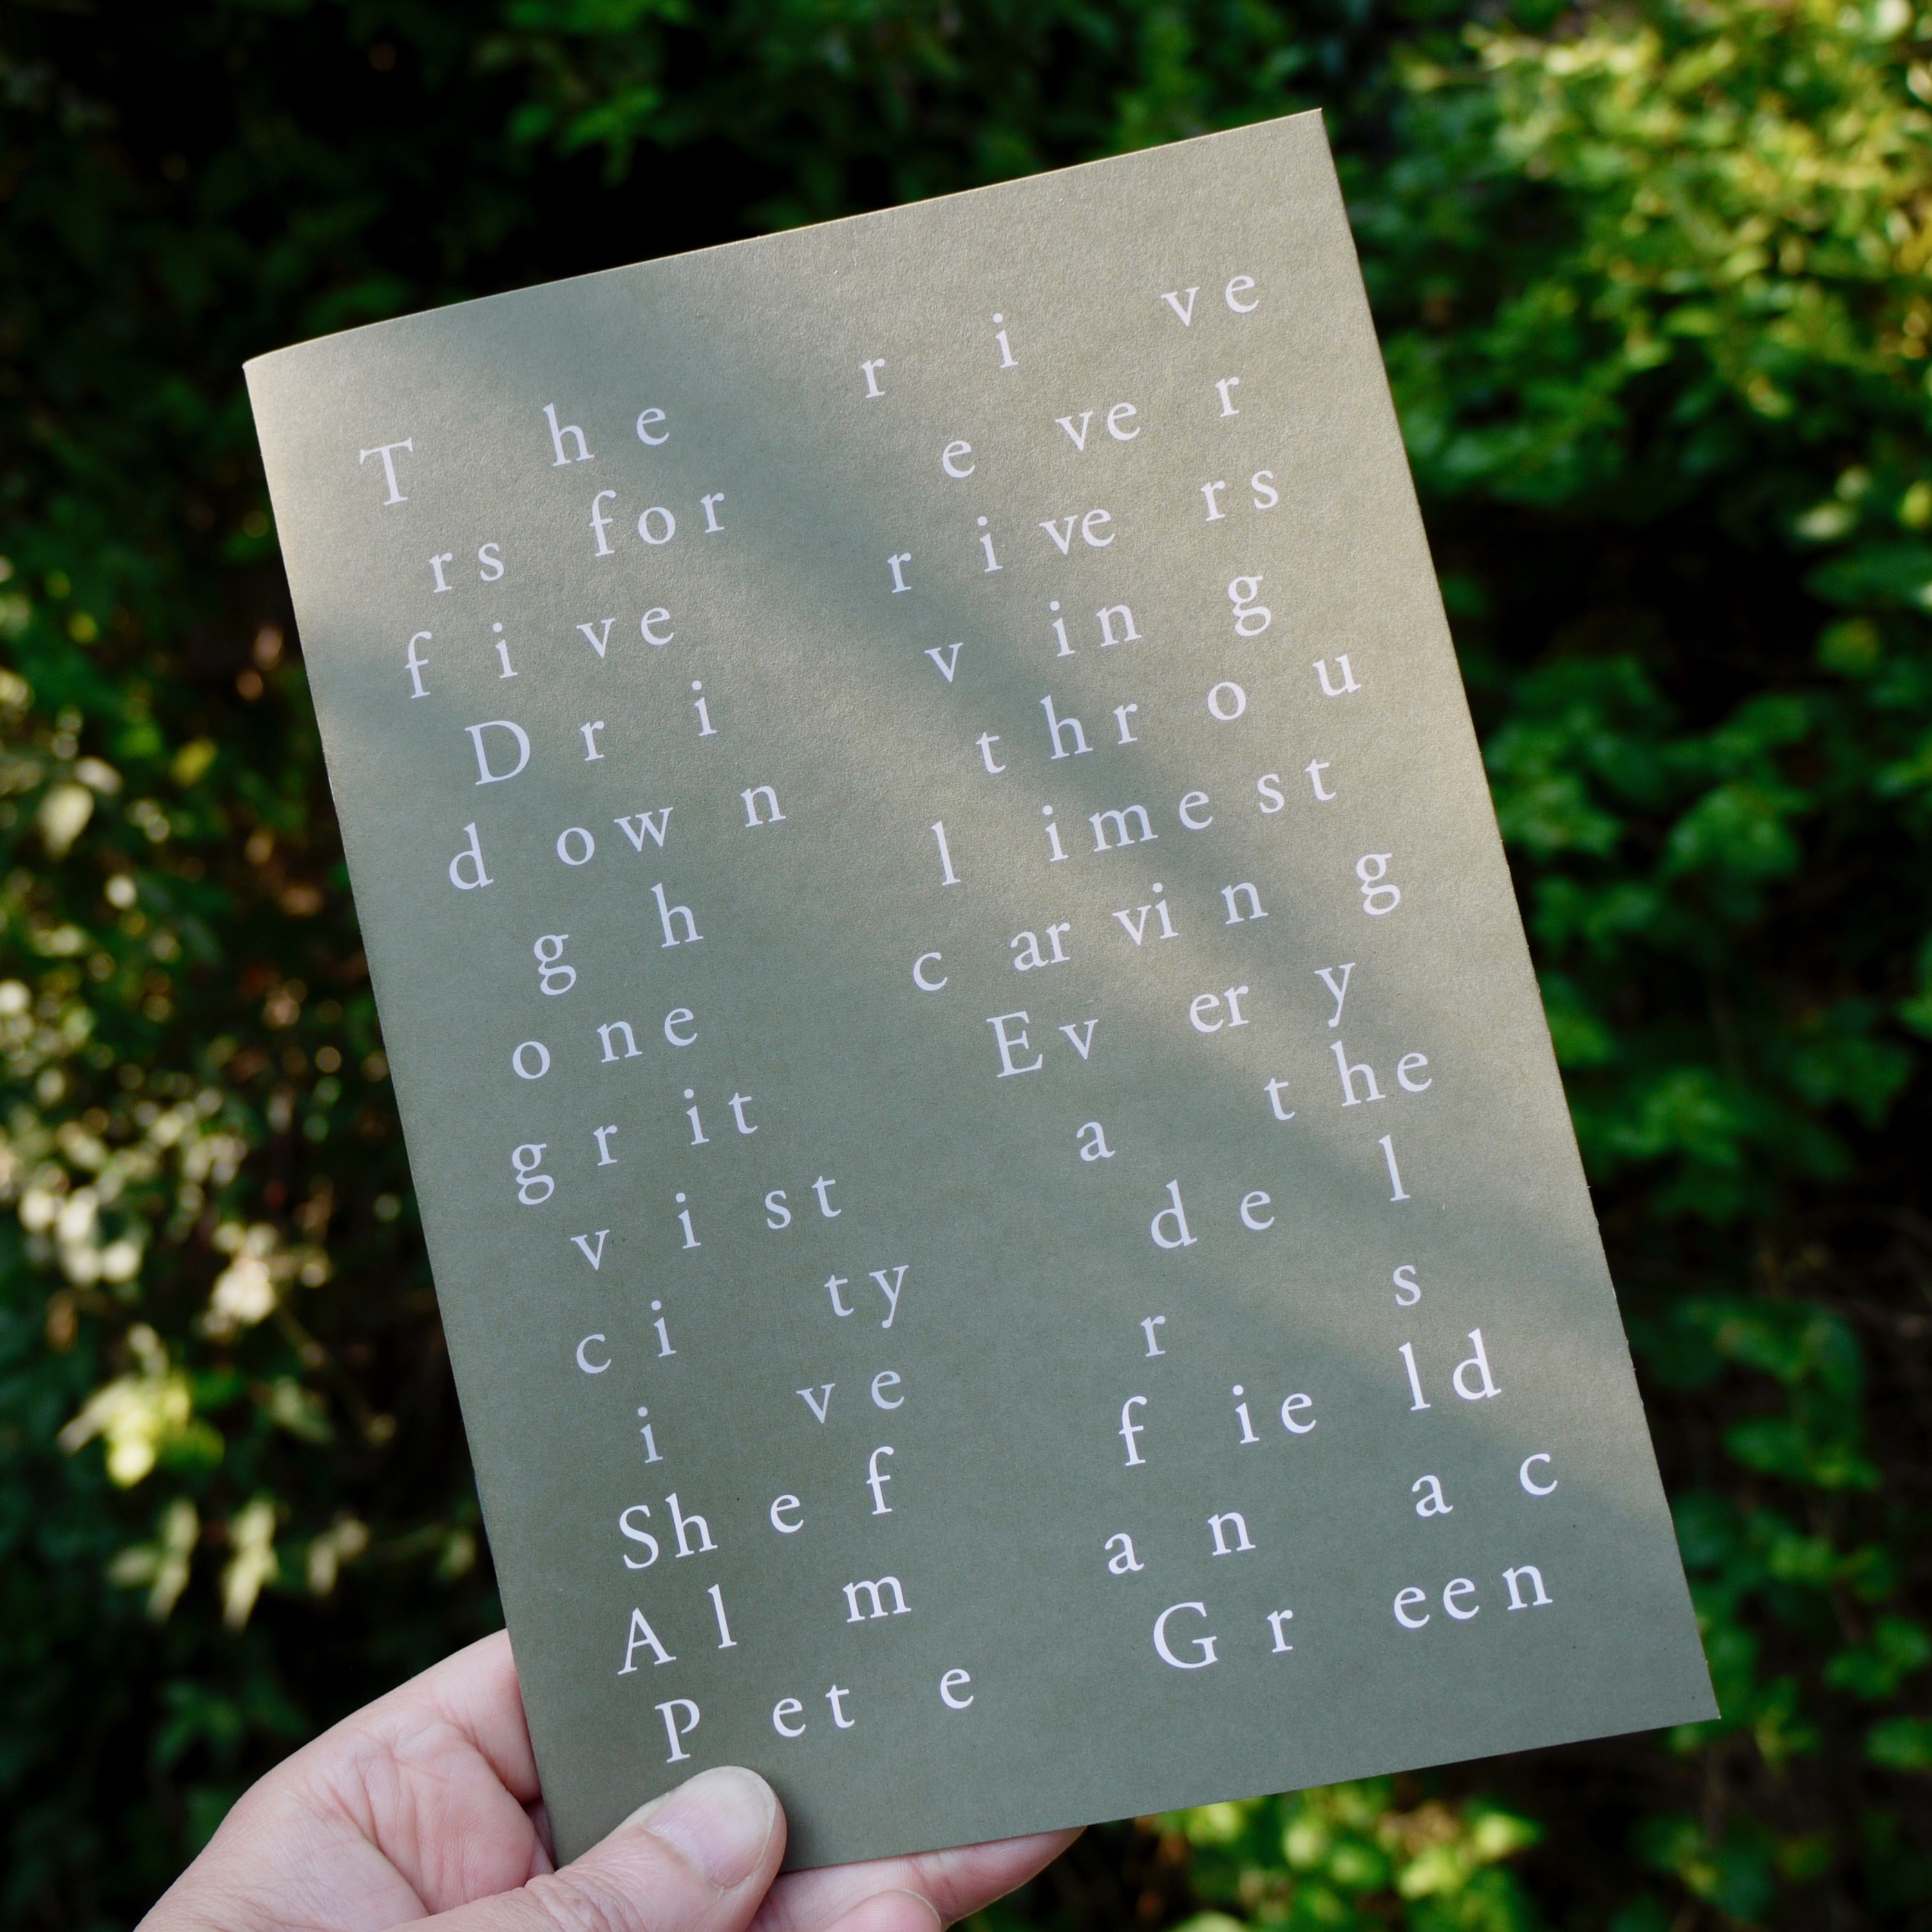 T h e r i v e
r s f o r e v e r
f i v e r i v e r s
D r i v i n g
d o w n t h r o u
g h l i m e s t
o n e c a r v i n g
g r i t E v e r y
v i s t a t h e
c i t y d e l
i v e r s
S h e f f i e l d
A l m a n a c
P e t e G r e e n